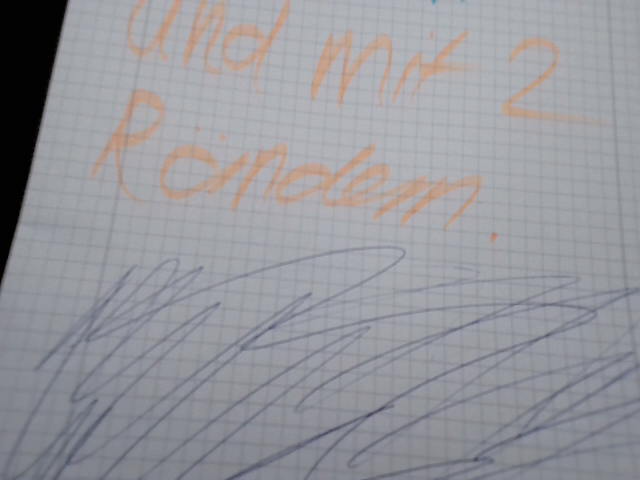 und mit 2
Römdern.